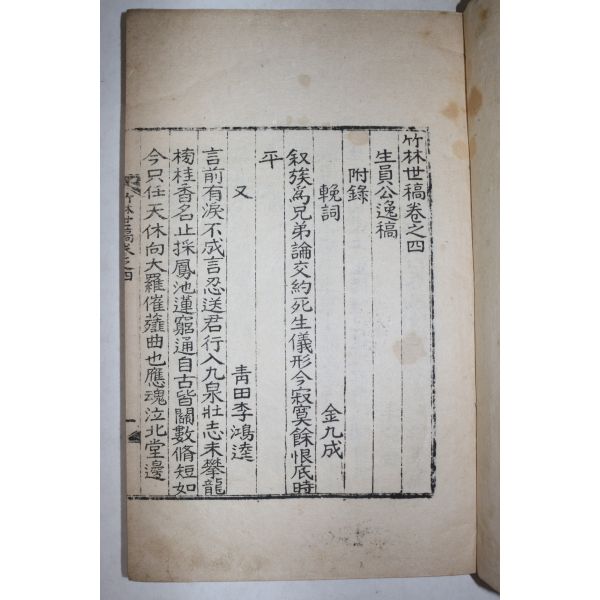 竹林世稿卷之四
生員公逸稿
附錄
輓詞 金九成
叙族爲兄弟論交約死生儀形今寂寞餘恨底時
平
又 靑田李鴻逵
言前有淚不成言忍送君行入九泉壯志未攀龍
榜桂香名止採鳳池蓮窮通自古皆關數脩短如
今只任天休向大羅催薤曲也應魂泣北堂邊
竹林世稿卷之四 一